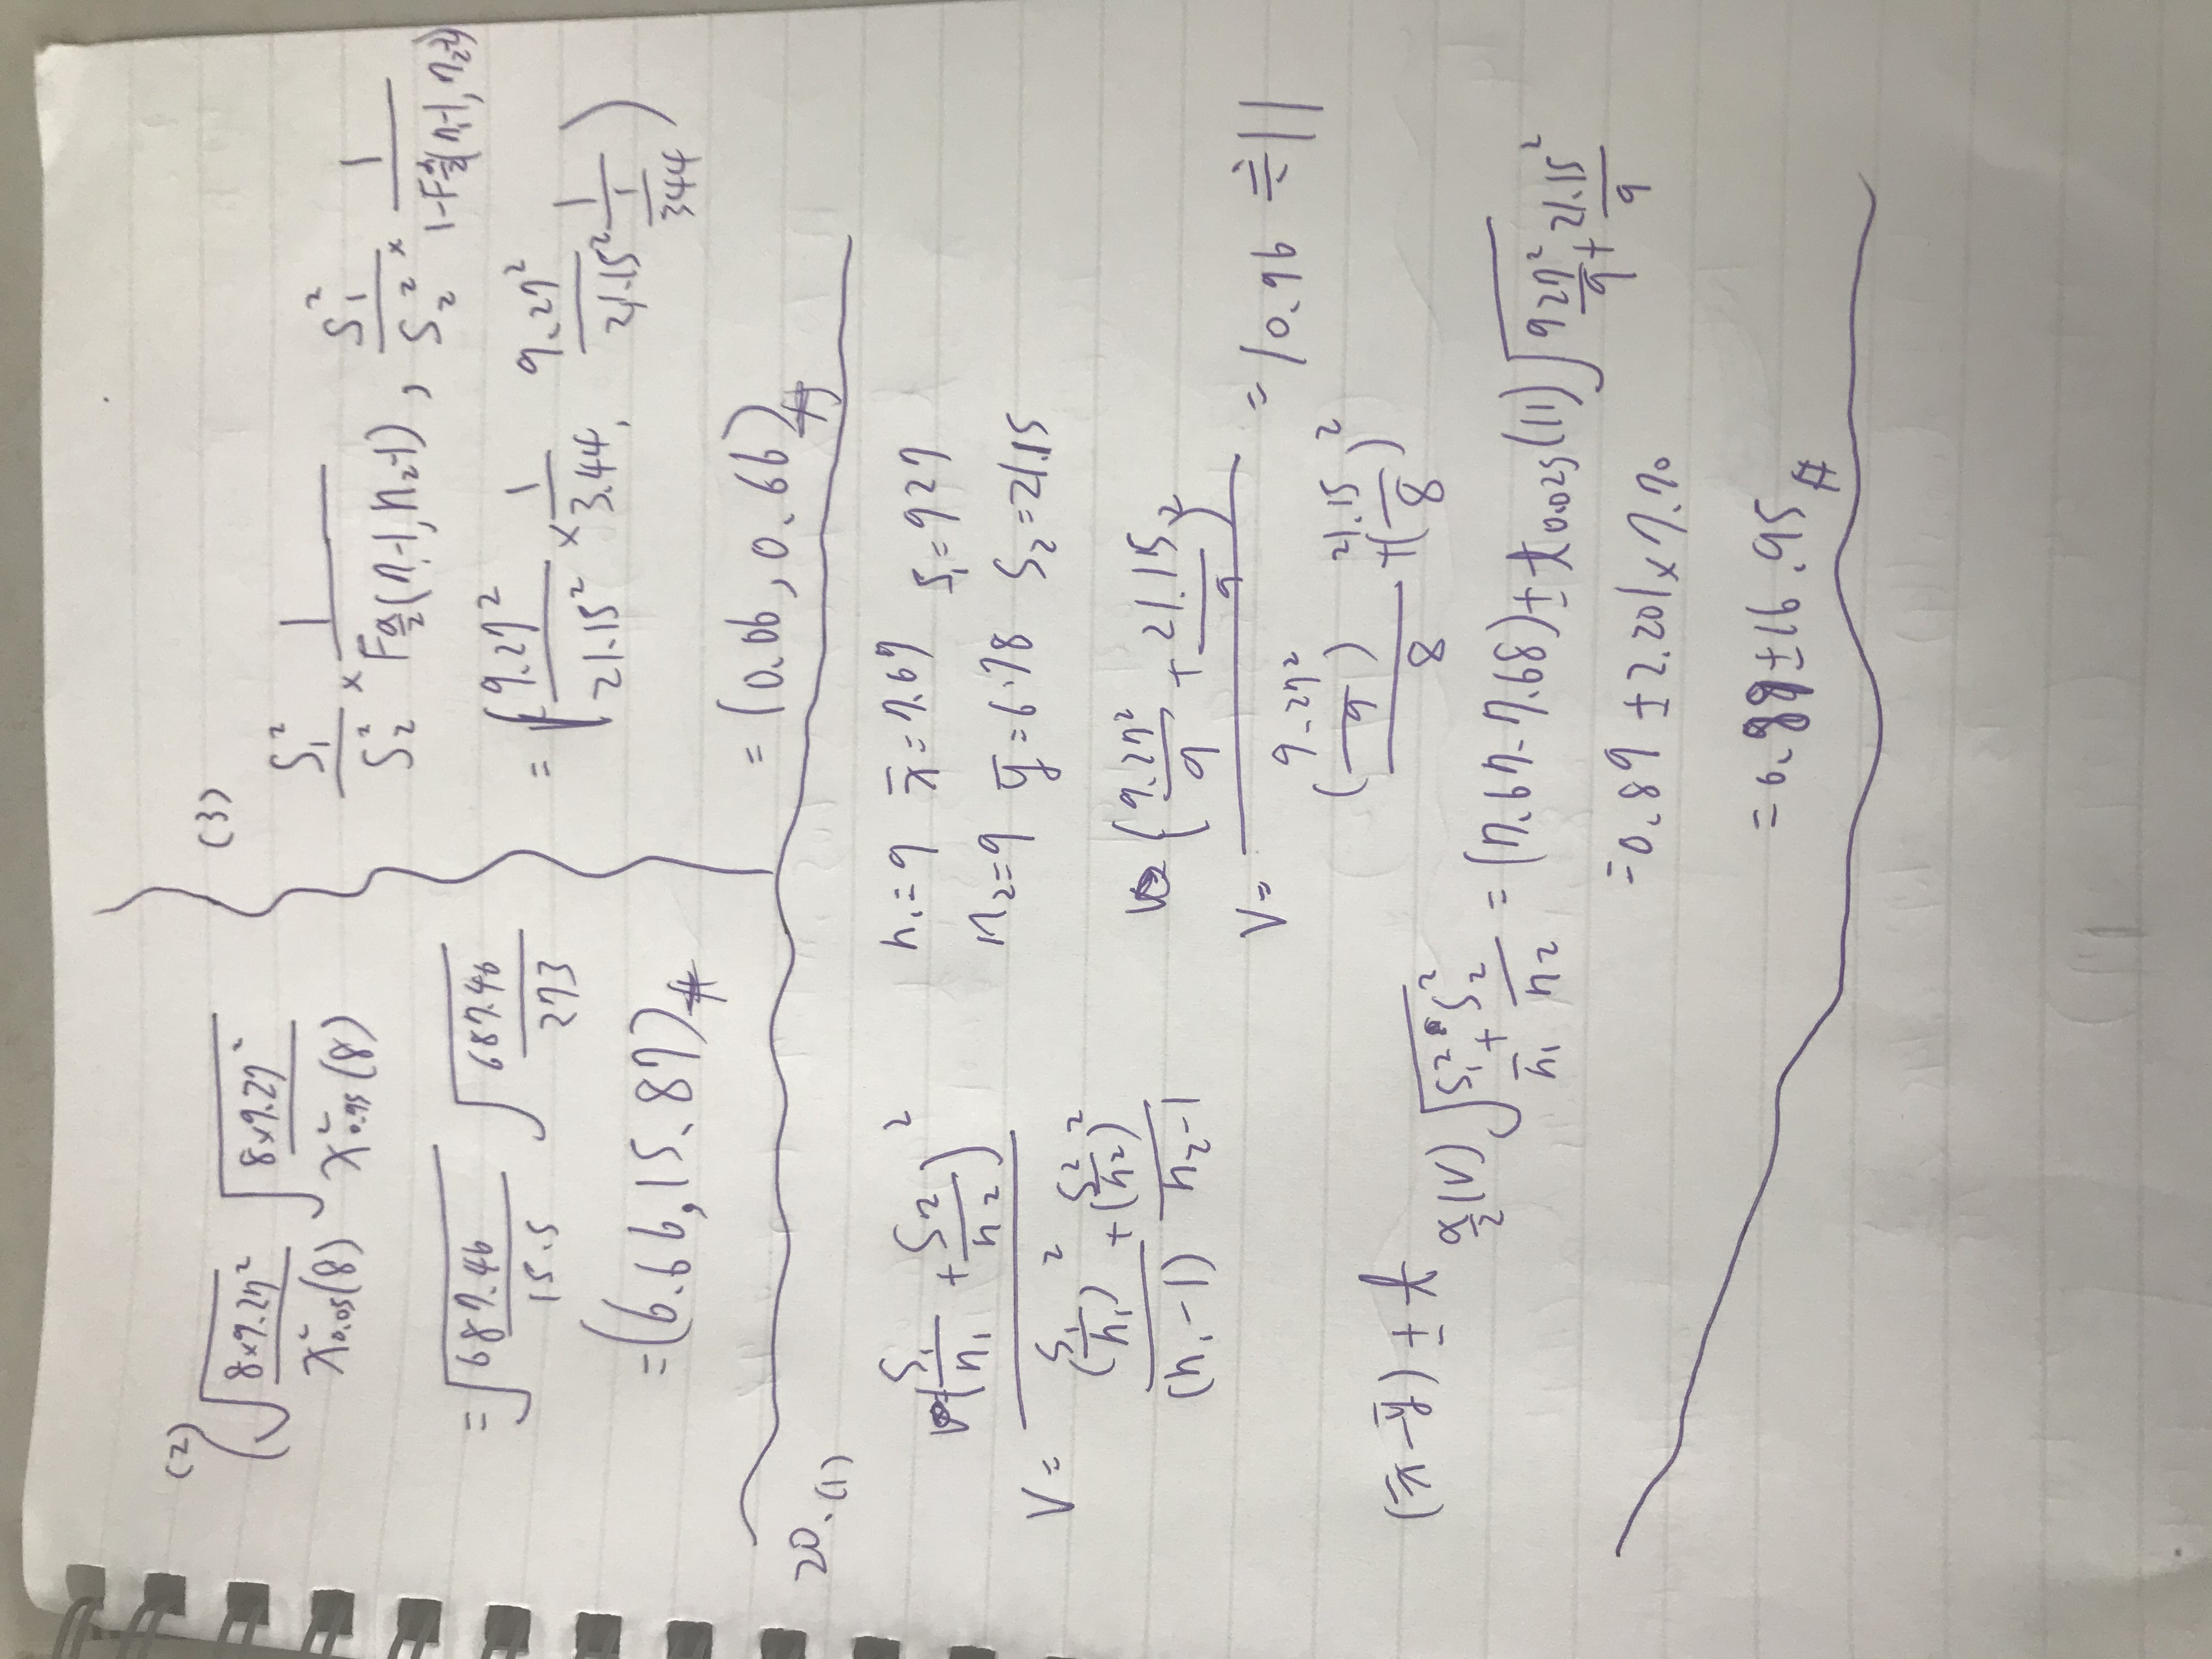 (2)
( √(8×9.27² / χ²0.05(8)) √(8×9.27² / χ²0.95(8))
= √(687.46 / 15.5) √(687.46 / 273)
= (6.66, 15.87)#
(3)
S₁²/S₂² × 1/F α/2 (n₁-1, n₂-1) , S₁²/S₂² × 1/1-F α/2 (n₁-1, n₂-1)
= ( 9.27²/21.15² × 1/3.44 , 9.27²/21.15² 1/(1/344) )
= (0.06, 0.66)#
20. (1)
V = (S₁/n₁ + S₂/n₂)² / ( (S₁/n₁)²/(n₁-1) + (S₂/n₂)²/n₂-1 )
n₁=9 x̄=7.67 S₁=927
n₂=9 ȳ=6.78 S₂=21.15
V = (9.27²/9 + 21.15/9)² / ( (9.27²/9)/8 + (21.15/8)² ) = 10.96 ≑ 11
(x̄-ȳ) ± t α/2 (V) √(S₁²/n₁ + S₂²/n₂) = (7.67-7.68) ± t0.025(11) √(927²/9 + 21.15²/9)
= 0.89 ± 2.201×7.70
= 0.89 ± 16.95#